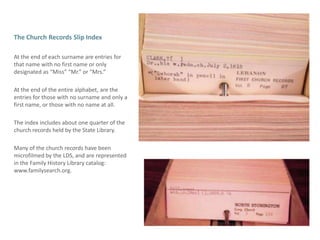 The Church Records Slip Index
At the end of each surname are entries for
that name with no first name or only
designated as "Miss" "Mr." or "Mrs."
At the end of the entire alphabet, are the
entries for those with no surname and only a
first name, or those with no name at all.
The index includes about one quarter of the
church records held by the State Library.
Many of the church records have been
microfilmed by the LDS, and are represented
in the Family History Library catalog:
www.familysearch.org.
July 2, 1815
("Deborah" in pencil in
later hand)
LEBANON
FIRST CHURCH
RECORDS
Vol.
NORTH STONINGTON